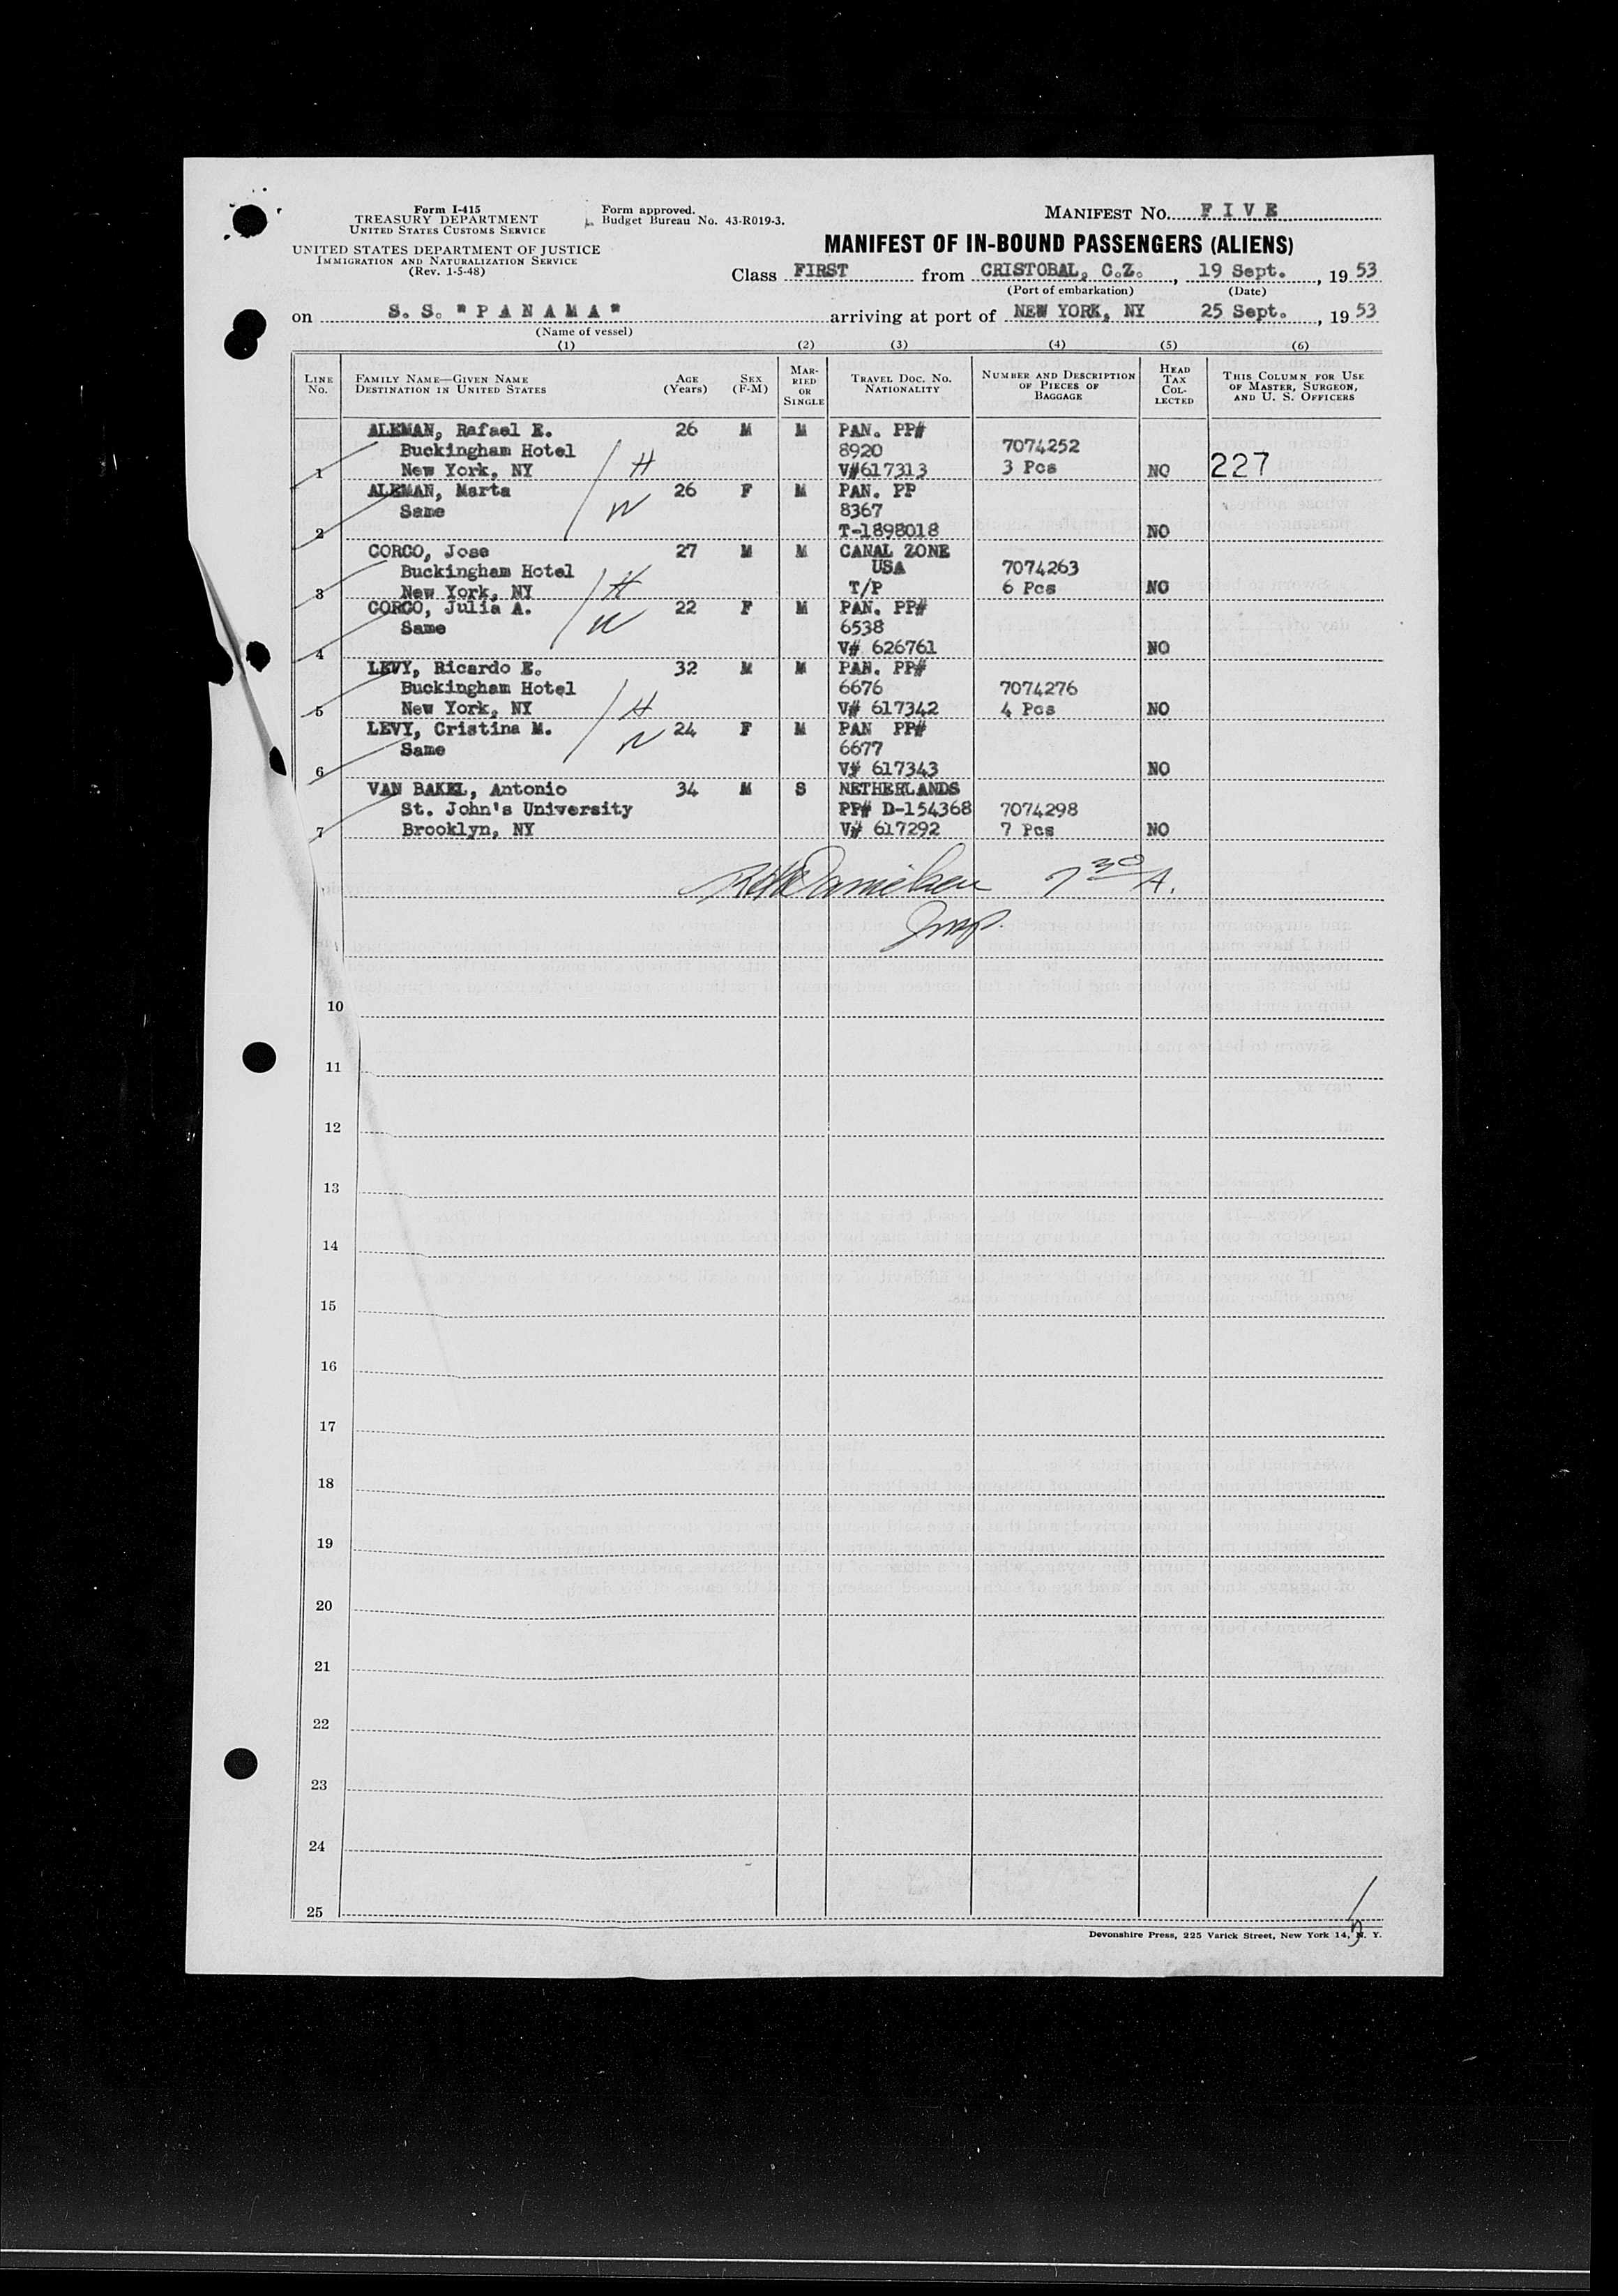 Form I-415
TREASURY DEPARTMENT
UNITED STATES CUSTOMS SERVICE
UNITED STATES DEPARTMENT OF JUSTICE
IMMIGRATION AND NATURALIZATION SERVICE
(Rev. 1-5-48)
Form approved.
Budget Bureau No. 43-R019-3.
MANIFEST NO. F I V E
MANIFEST OF IN-BOUND PASSENGERS (ALIENS)
Class FIRST from CRISTOBAL, C.Z., 19 Sept., 19 53
(Port of embarkation) (Date)
on S. S. "P A N A M A" arriving at port of NEW YORK, NY 25 Sept., 19 53
(Name of vessel)
(1) (2) (3) (4) (5) (6)
LINE NO. FAMILY NAME—GIVEN NAME DESTINATION IN UNITED STATES AGE (Years) SEX (F-M) MARRIED OR SINGLE TRAVEL DOC. NO. NATIONALITY NUMBER AND DESCRIPTION OF PIECES OF BAGGAGE HEAD TAX COLLECTED THIS COLUMN FOR USE OF MASTER, SURGEON, AND U. S. OFFICERS
ALEMAN, Rafael E. 26 M M PAN. PP#
Buckingham Hotel 8920 7074252
1 New York, NY H V#617313 3 Pcs NO 227
ALEMAN, Marta 26 F M PAN. PP
Same W 8367
2 T-1898018 NO
CORCO, Jose 27 M M CANAL ZONE
Buckingham Hotel USA 7074263
3 New York, NY H T/P 6 Pcs NO
CORCO, Julia A. 22 F M PAN. PP#
Same W 6538
4 V# 626761 NO
LEVY, Ricardo E. 32 M M PAN. PP#
Buckingham Hotel 6676 7074276
5 New York, NY H V# 617342 4 Pcs NO
LEVY, Cristina M. 24 F M PAN PP#
Same W 6677
6 V# 617343 NO
VAN BAKEL, Antonio 34 M S NETHERLANDS
St. John's University PP# D-154368 7074298
7 Brooklyn, NY V# 617292 7 Pcs NO
7 30 A.
Insp.
10
11
12
13
14
15
16
17
18
19
20
21
22
23
24
25
Devonshire Press, 225 Varick Street, New York 14, N. Y.